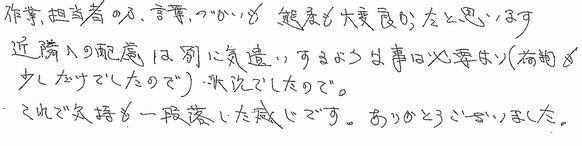 作業、担当者の方、言葉、づかいも 態度も大変良かったと思います
近隣への配慮は別に気遣いするような事は必要なし(荷物も
少しだけでしたので)状況でしたので。
これで気持も一段落した感じです。ありがとうございました。